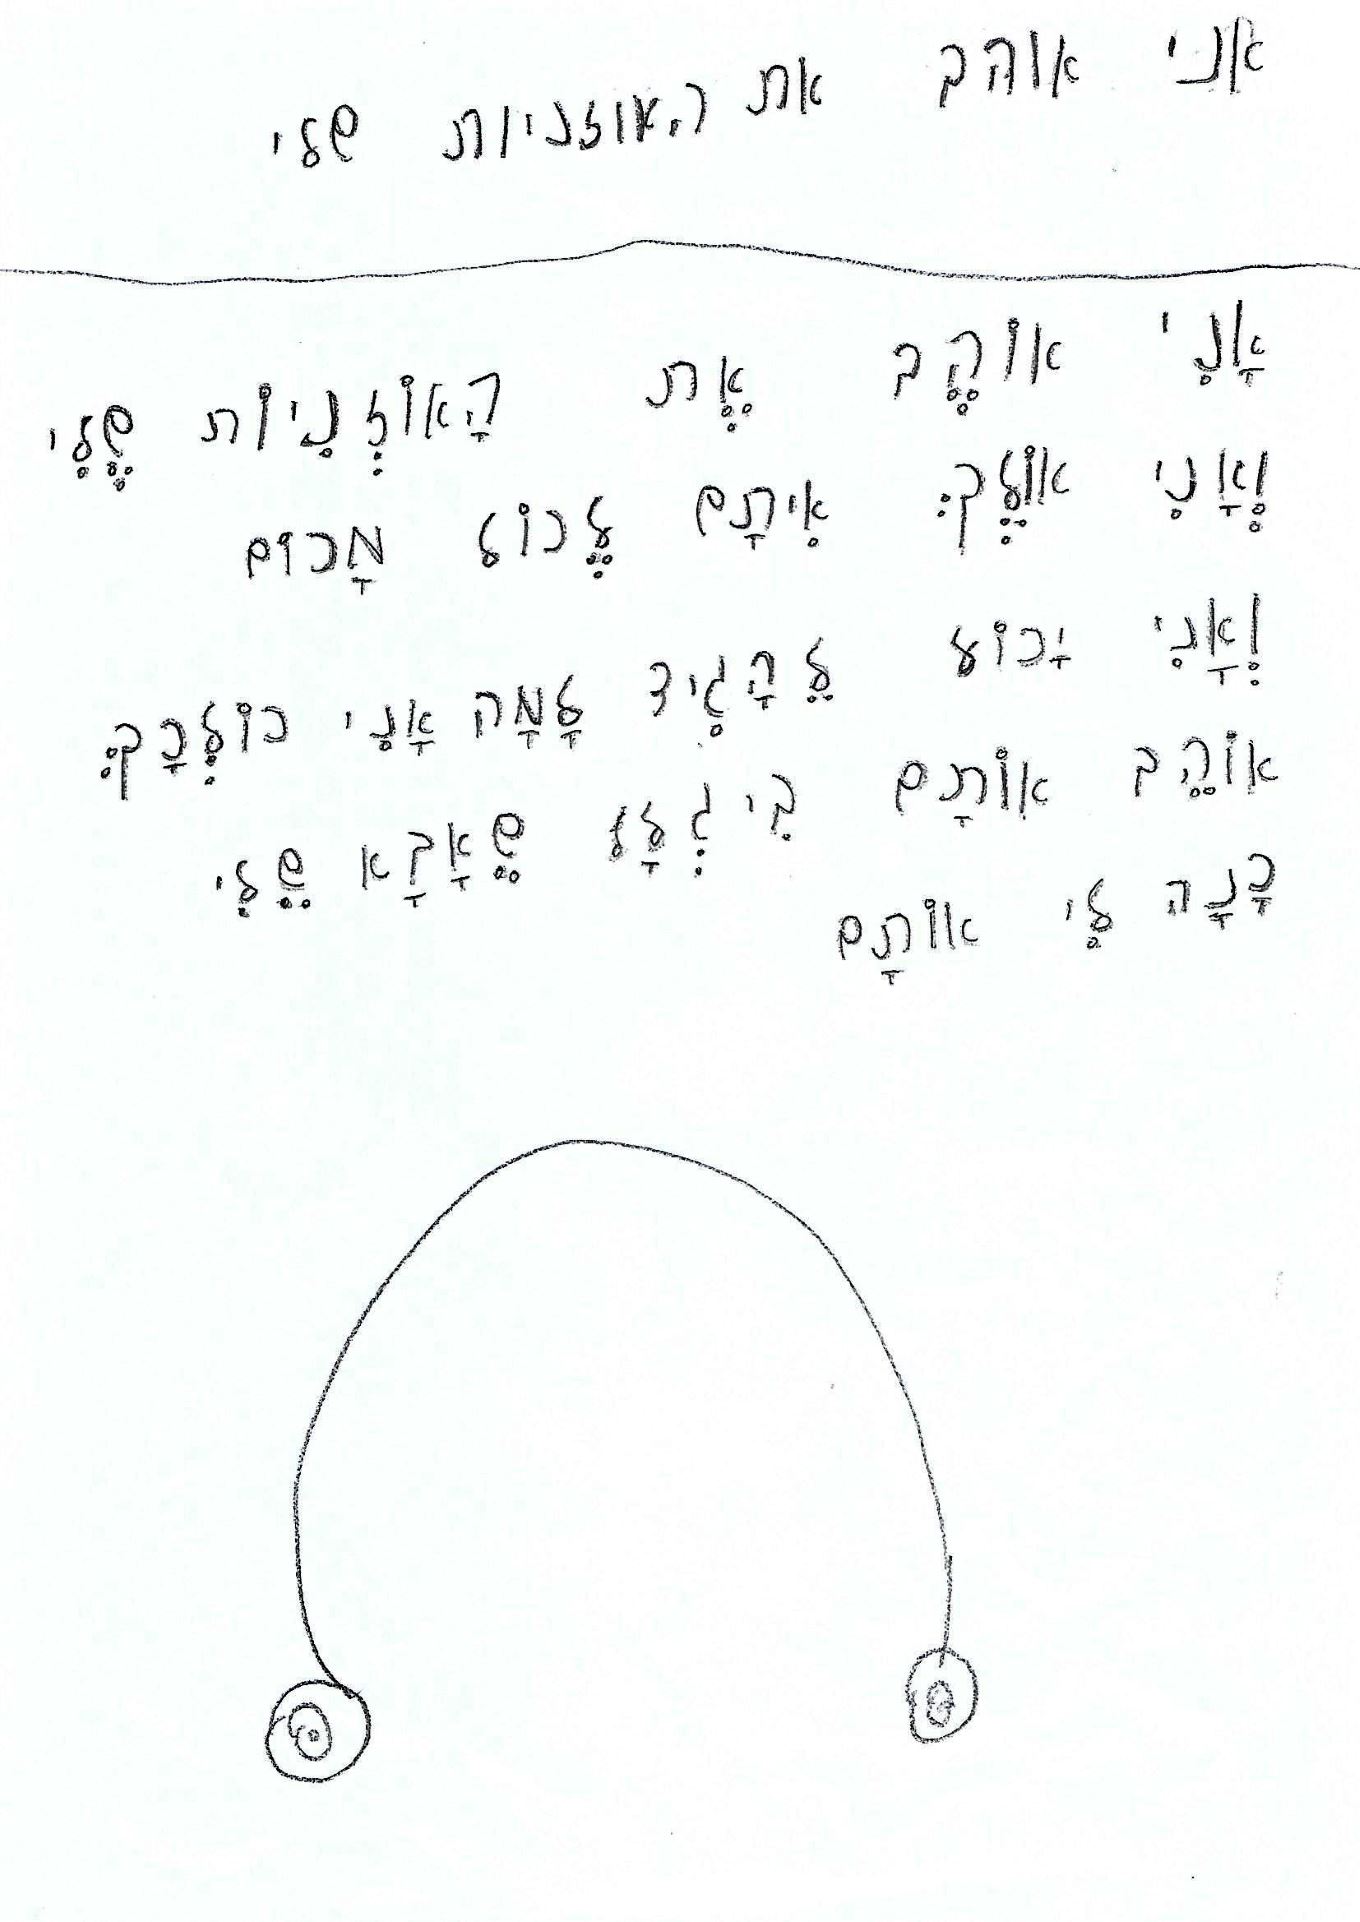 אני אוהב את האוזניות שלי
אָנִי אוֹהֶב אֶת הָאוֹזְנִיוֹת שֶלִי
וְאָנִי אוֹלֶךְ אִיתָם לֶכוֹל מָכום
וְאָנִי יָכוֹל לֵהָגִיד לָמָה אָנִי כוֹלְכָךְ
אוֹהֵב אוֹתָם בִיגְלָל שֶאָבָא שֶלִי
כָנָה לִי אוֹתָם